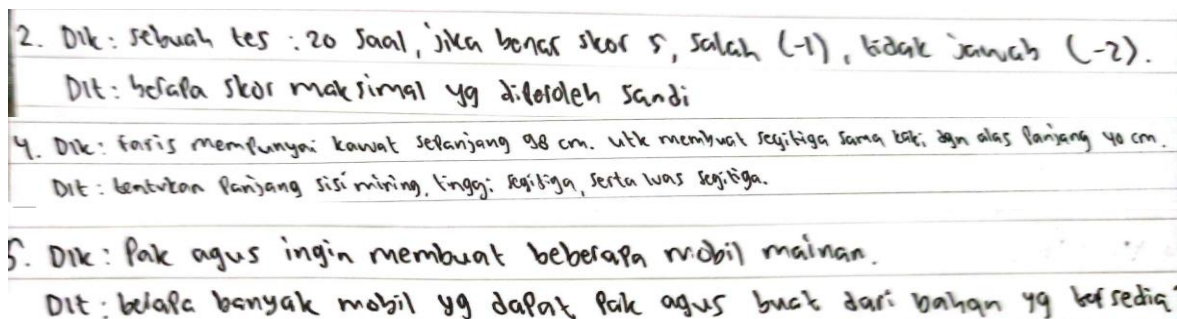 2. Dik: sebuah tes : 20 soal, jika benar skor 5, salah (-1), tidak jawab (-2).
Dit: berapa skor maksimal yg diperoleh sandi
4. Dik: faris mempunyai kawat sepanjang 98 cm. utk membuat segitiga sama kaki dgn alas panjang 40 cm.
Dit: tentukan panjang sisi miring, tinggi segitiga, serta luas segitiga.
5. Dik: Pak agus ingin membuat beberapa mobil mainan.
Dit: berapa banyak mobil yg dapat pak agus buat dari bahan yg tersedia